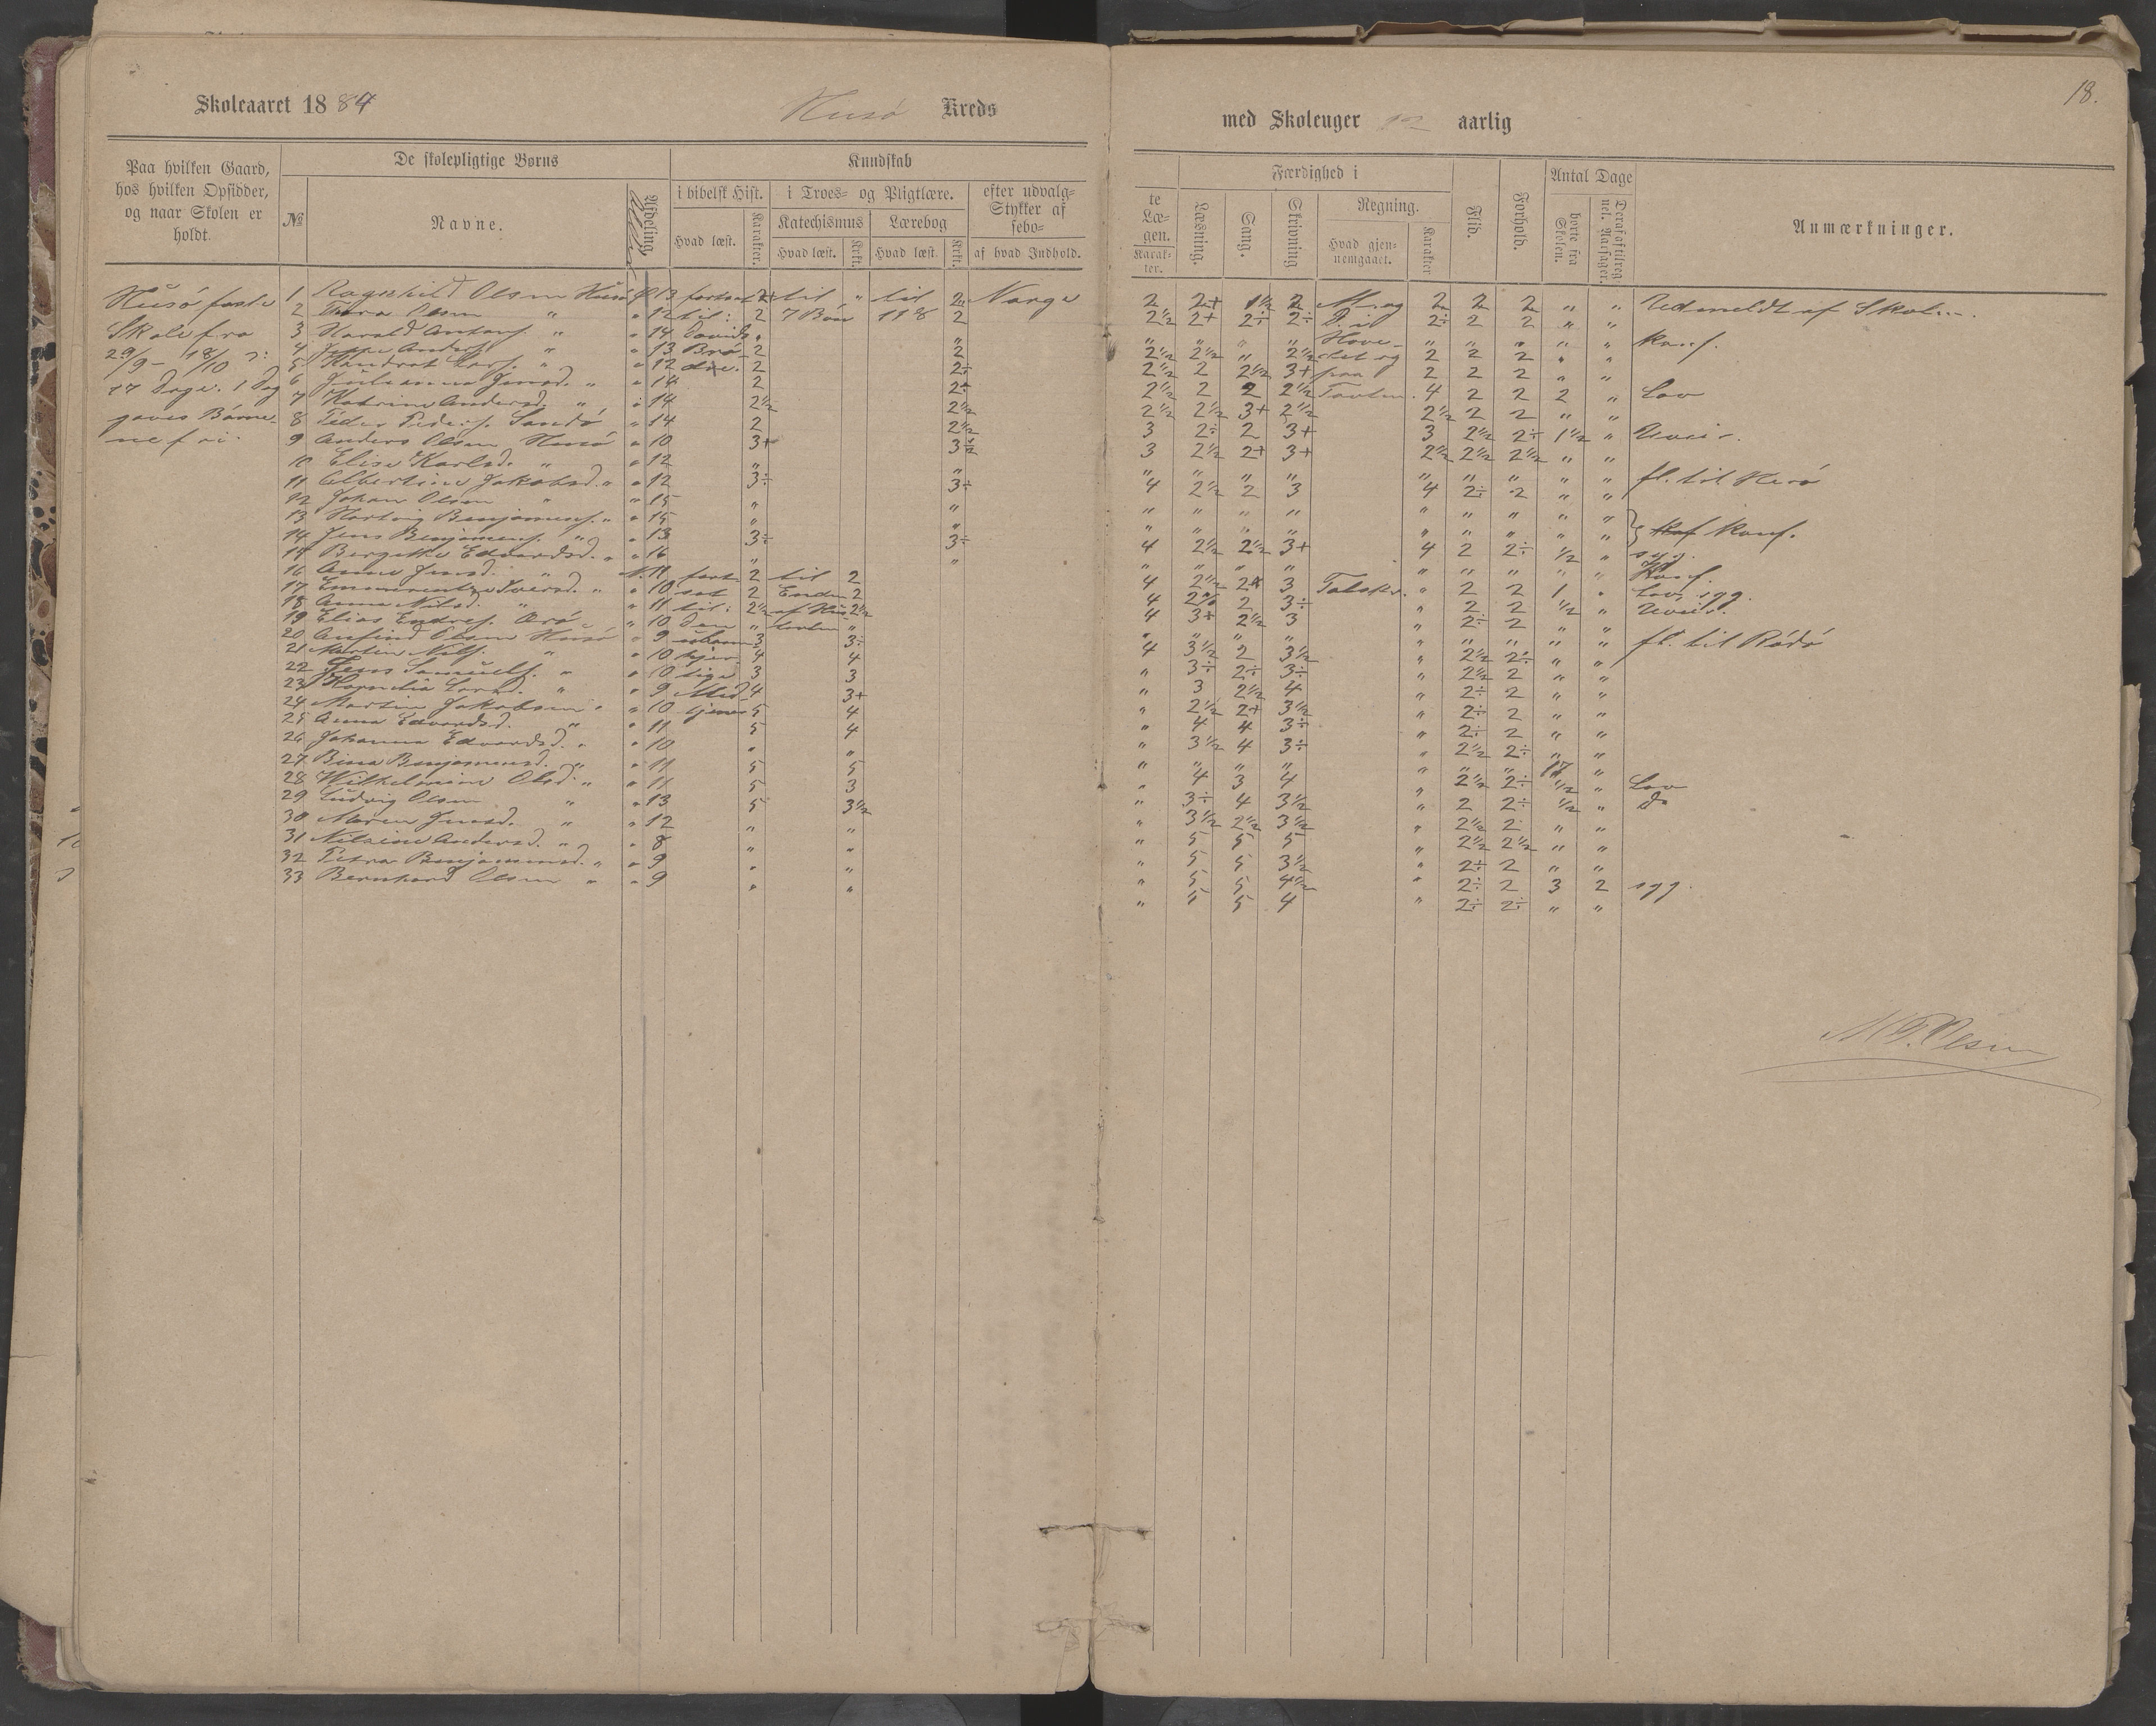 18.
Skoleaaret 1884 Husö Kreds
med Skoleuger 12 aarlig
Paa hvilken Gaard, hos hvilken Opsidder, og naar Skolen er holdt.
De skolepligtige Børns
№ Navne. Afdeling. Alder
Kundskab
i bibelsk Hist. i Troes- og Pligtlære. efter udvalg-
Stykker af
sebo-
Katechismus Lærebog
Hvad læst. Karakter. Hvad læst. Krkt. Hvad læst. Krkt. af hvad Indhold.
te Læ-
gen.
Karak-
ter.
Færdighed i
Læsning. Sang. Skrivning Regning.
Hvad gjen-
nemgaaet. Karakter
Flid. Forhold. Antal Dage
borte fra Skolen. Deraf af tilreg
nel. Aarsager.
Anmærkninger.
Husö faste
Skole fra
29/9 - 18/10
17 Dage. 1 Dag
gaves Börne-
ne fri.
1 Ragnhild Olsen Husö 13 fortsat 2+ til " til 2 Norge 2 2+ 1½ 2 M. og 2 2 2 " " Udmeldt af Skol...
2 Thora Olsen " " 12 til: 2 7 Bön 118 2 2½ 2+ 2÷ 2÷ D. i 2÷ 2 2 " "
3 Harald Antons. " " 14 Davids " " " " " " Hove- " " " " " Konf.
4 Jeppe Anders. " " 13 Brö- 2 2 2½ 2½ " 2½ det og 2 2 2 " "
5 Kondrat Lars. " " 12 dre. 2 2÷ 2½ 2 2½ 3+ paa 2 2 2 " "
6 Julianna Jensd. " " 14 2 2÷ 2½ 2 2 2½ Tavlen. 4 2 2 2 " Lov
7 Katrine Andersd. " " 14 2½ 2½ 2½ 2½ 3+ 2½ 2½ 2 2 " "
8 Peder Peders. Sandö " 14 2 2½ 3 2÷ 2 3+ 3 2½ 2÷ 1½ " Uveir.
9 Anders Olsen Husö " 10 3+ 3½ 3 2½ 2+ 3+ 2½ 2½ 2½ " "
10 Elise Karlsd. " " 12 " " " " " " " " " " " fl. til Nesö
11 Albertine Jakobsd. " " 12 3÷ 3÷ 4 2½ 2 3 4 2÷ 2 " "
12 Johan Olsen " " 15 " " " " " " " " " " "
13 Hartvig Benjamins. " " 15 " " " " " " " " " " " } Konf.
14 Jens Benjamins. " " 13 3÷ 3÷ 4 2½ 2½ 3+ 4 2 2÷ ½ " syg.
15 Bergitte Edvardsd. " " 16 " " " " " " " " " " " Konf.
16 Anne Jensd. " N. 11 fort- 2 til 2 4 2½ 2+ 3 Talskr. " 2 2 1 " Lov, syg.
17 Emmerentze Iversd. " " 10 sat 2 Enden 2 4 2½ 2 3÷ " 2 2 ½ " Uveir.
18 Anna Nilsd. " " 11 til: 2½ af Hus- 2½ 4 3+ 2½ 3 " 2÷ 2 " "
19 Elias Endres. Örö " 10 den " tavlen " " " " " " " " " " fl. til Rödö
20 Anfind Olsen Husö " 9 ubarm- 3 3÷ 4 3½ 2 3½ " 2½ 2÷ " "
21 Morten Nils. " " 10 hjer- 4 4 " 3÷ 2÷ 3÷ " 2½ 2 " "
22 Jens Samuels. " " 10 tige 3 3 " 3 2½ 4 " 2÷ 2 " "
23 Kornelia Larsd. " " 9 Med- 4 3+ " 2½ 2+ 3½ " 2÷ 2 " "
24 Martin Jakobsen " " 10 tjener 5 4 " 4 4 3÷ " 2÷ 2 " "
25 Anna Edvardsd. " " 11 5 4 " 3½ 4 3÷ " 2½ 2÷ " "
26 Johanna Edvardsd. " " 10 " " " " " " " " " 17 "
27 Bina Benjaminsd. " " 11 5 5 " 4 3 4 " 2½ 2÷ ½ " Lov
28 Wilhelmine Olsd. " " 11 5 3 " 3÷ 4 3½ " 2 2÷ ½ " Do
29 Ludvig Olsen " " 13 5 3½ " 3½ 2½ 3½ " 2½ 2 " "
30 Maren Jensd. " " 12 " " " 5 5 5 " 2½ 2½ " "
31 Nilsine Andersd. " " 8 " " " 5 5 3½ " 2÷ 2 " "
32 Petra Benjaminsd. " " 9 " " " 5 5 4½ " 2÷ 2 3 2 syg.
33 Bernhard Olsen " " 9 " " " " 5 4 " 2÷ 2÷ " "